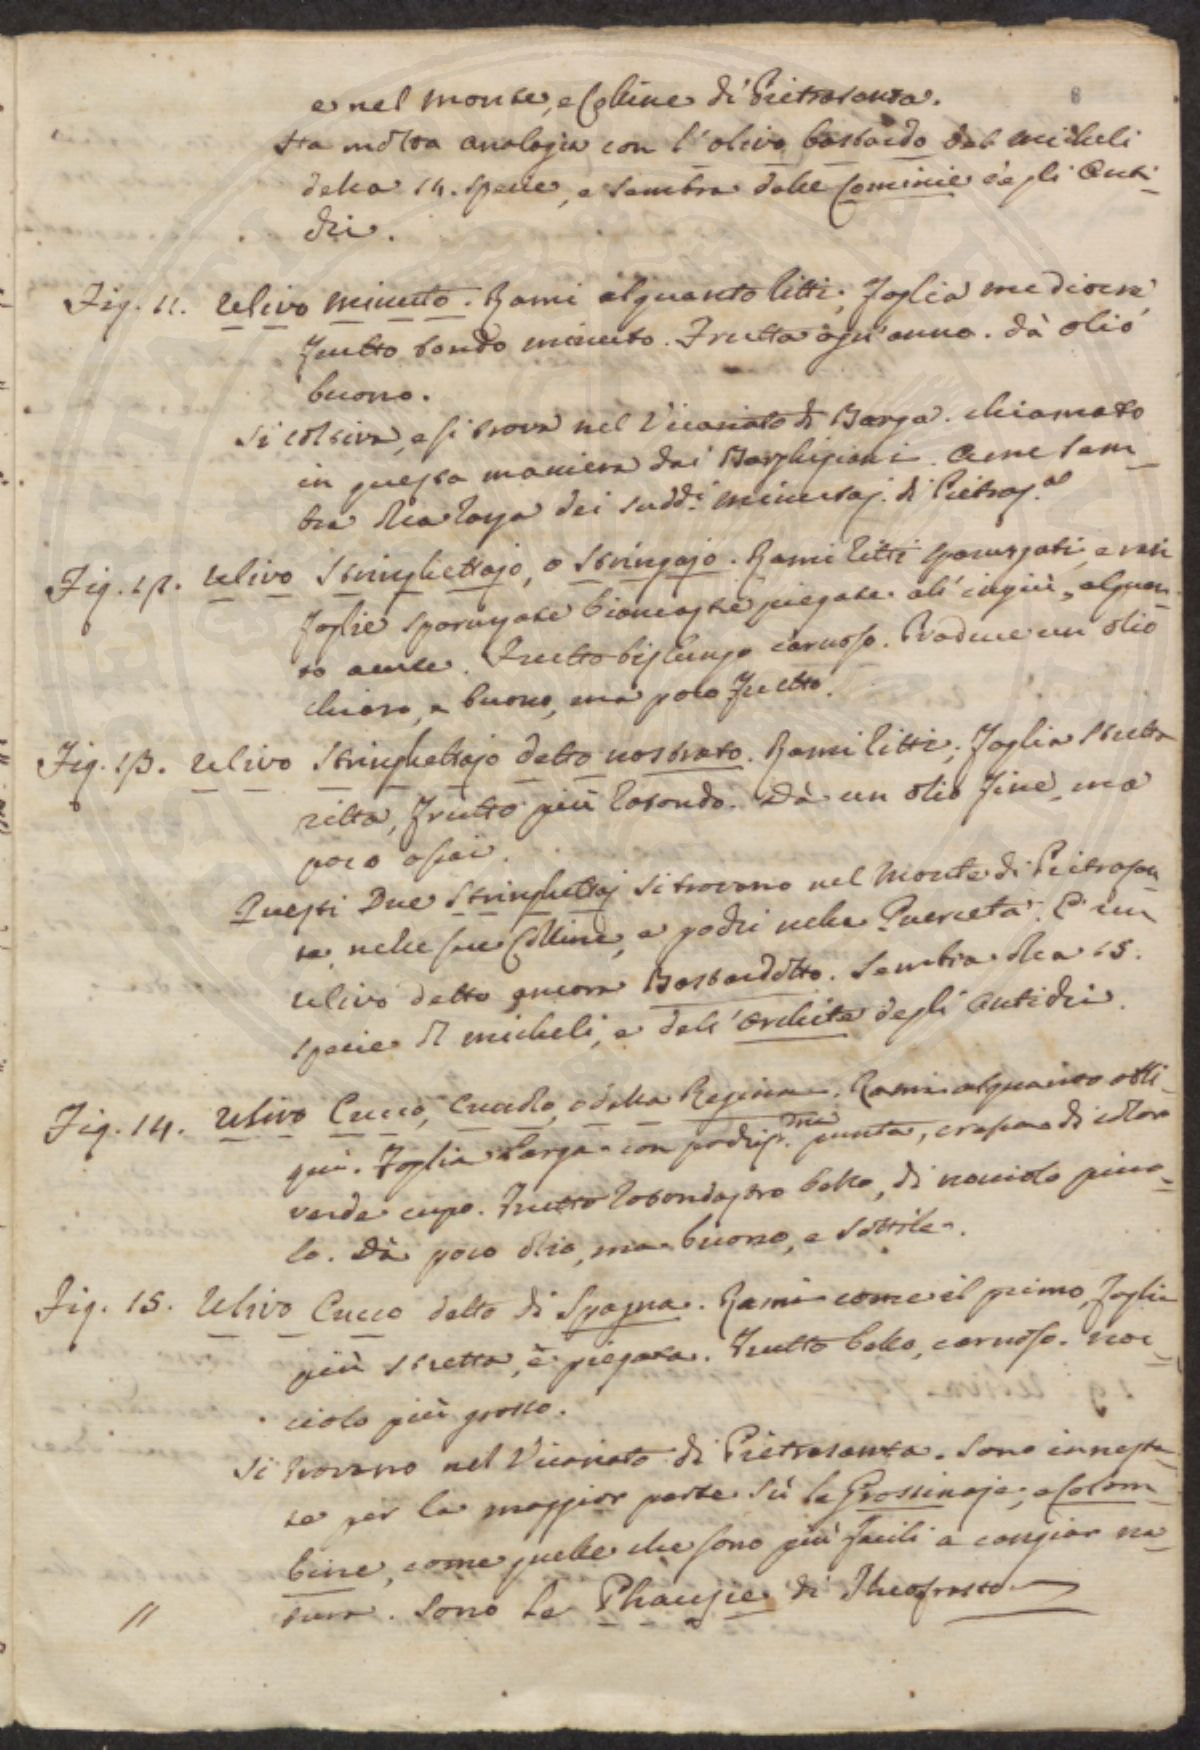 e nel monte, e Colline di Pietrasanta.
Ha molta analogia con l'olivo bastardo del Micheli
della 14. specie, e sembra delle Cominie degli Anti-
chi.
Fig. 11. Ulivo minuto. Rami alquanto litti; foglia mediocre
frutto tondo minuto. Frutta ogn'anno. dà olio
buono.
Si coltiva, e si trova nel Vicariato di Barga. chiamato
in questa maniera dai Barghigiani. Come sem-
bra della raza dei sudd.i minutaj. di Pietras.a
Fig. 12. Ulivo Stringhettajo, o Stringajo. Rami litti sparpagati, e rari
foglie sparpagate biancastre piegate all'ingiù, alquan-
to acute. Frutto bislungo carnoso. Produce un olio
chiaro, e buono, ma poco frutto.
Fig. 13. Ulivo Stringhettajo detto nostrato. Rami litti; foglia stretta
ritta, frutto più rotondo. Dà un olio fine, ma
poco assai.
Questi Due Stringhettaj si trovano nel Monte di Pietrasan-
ta, nelle sue Colline, e pochi nella Querceta. È un
ulivo detto ancora Bastardotto. Sembra della 15.
specie del Micheli, e dell'Orchite degli Antichi.
Fig. 14. Ulivo Cucco, Cucchio, o della Regina. Rami alquanto obli-
qui. Foglia larga con pochiss.ma punta, crespa di colore
verde cupo. Frutto rotondastro bello, di nociolo picco-
lo. Dà poco olio, ma buono, e sottile.
Fig. 15. Ulivo Cucco detto di Spagna. Rami come il primo, foglia
più stretta, e piegata. Frutto bello, carnoso. noc-
ciolo più grosso.
Si trovano nel Vicariato di Pietrasanta. Sono innesta-
te per la maggior parte sù le Grossinaje, e Colom-
bine, come quelle che sono più facili a cangiar na-
tura. Sono le Phaulie di Theofrasto
//